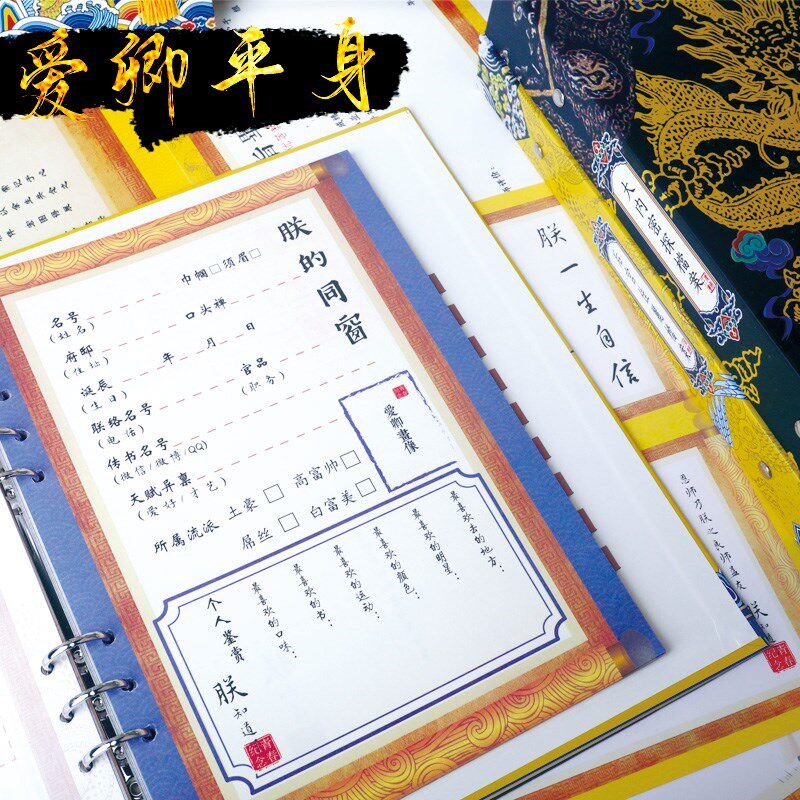 爱卿平身
朕的同窗
巾帼□须眉□
名号
(姓名)
口头禅
府邸
(住址)
年 月 日
诞辰
(生日)
官品
(职务)
联络名号
(电话)
传书名号
(微信/微博/QQ)
天赋异禀
(爱好/才艺)
所属流派 土豪□ 高富帅□
屌丝□ 白富美□
爱卿畫像
最喜欢去的地方:
最喜欢的明星:
最喜欢的颜色:
最喜欢的运动:
最喜欢的书:
最喜欢的口味:
个人鉴赏
朕知道
青春纪念
大内密探檔案
朕一生自信
恩师乃朕之良师益友
朕知道
青春纪念